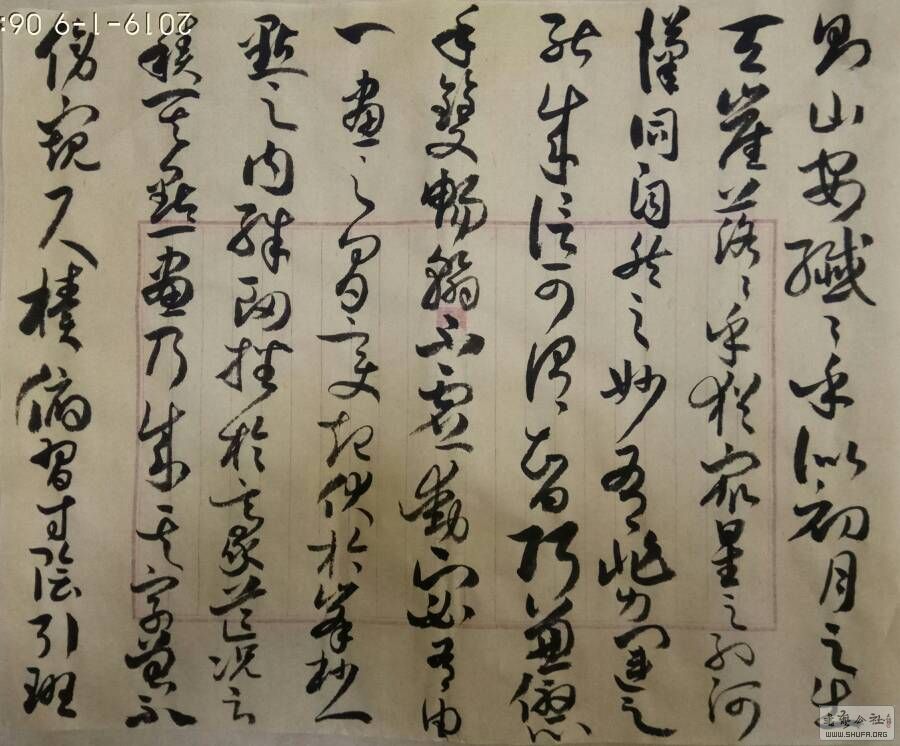 则山安纖〻乎似初月之出
天崖落〻乎猶眾星之列河
漢同自然之妙有非力運之
能成信可謂智巧兼優心
手雙暢翰不虛動下必有由
一畫之間變起伏於峯杪一
點之內殊衄挫於豪芒況云
積其點畫乃成其字曾不
傍窺尺牘俯習寸陰引班
2019-1-9 06:
WWW.SHUFA.ORG